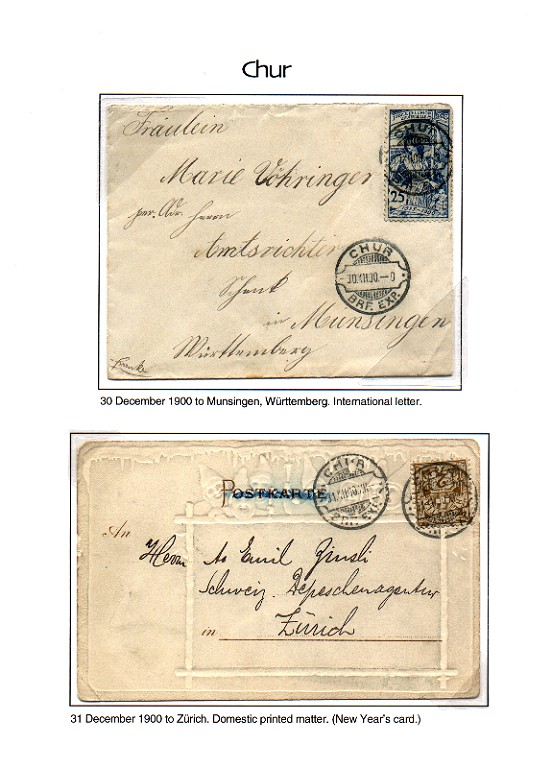 Chur
Fräulein
Marie Vöhringer
per. Adr. Herrn
Amtsrichter
Schenk
in Munsingen
Württemberg
Franko
25
CHUR
30.XII.00.—0
BRF. EXP.
30 December 1900 to Munsingen, Württemberg. International letter.
POSTKARTE
CHUR
31.XII.00
BRF. EXP.
An
Herrn As Emil Zinsli
Schweiz. Depeschenagentur
in Zürich
31 December 1900 to Zürich. Domestic printed matter. (New Year's card.)